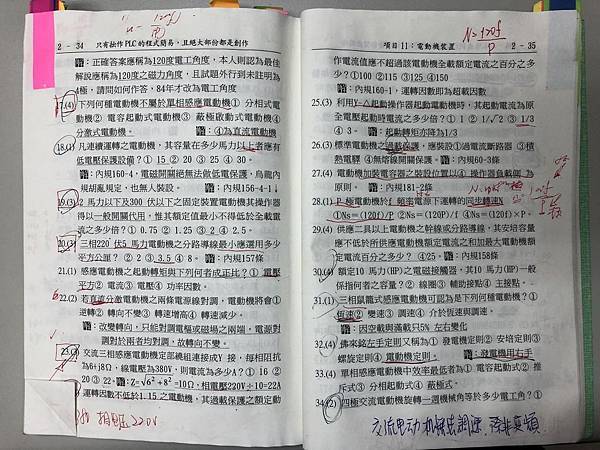 2－34 只有拙作PLC的程式簡易，且絕大部份都是創作
註：正確答案應稱為120度電工角度，本人則認為最佳
解說應稱為120度之磁力角度，且試題外行到未註明為
極，請問如何作答，84年才改為電工角度
17.(4) 下列何種電動機不屬於單相感應電動機① 分相式電
動機② 電容起動式電動機③ 蔽極啟動式電動機④
分激式電動機。 註：④為直流電動機
18.(3) 凡連續運轉之電動機，其容量在多少馬力以上者應有
低電壓保護設備？① 15 ② 20 ③ 25 ④ 30。
註：內規160-4，電磁開關絕無法做低電壓保護，烏龍內
規胡亂規定，也無人裝設。 註：內規156-4-1
19.(3) 2 馬力以下及300 伏以下之固定裝置電動機其操作器
得以一般開關代用，惟其額定值最小不得低於全載電
流之多少倍？① 0.75 ② 1.25 ③ 2 ④ 2.5。
20.(3) 三相220 伏5 馬力電動機之分路導線最小應選用多少
平方公厘？① 2 ② 3.5 ③ 4 ④ 8 註：內規157條
21.(1) 感應電動機之起動轉矩與下列何者成正比？① 電壓
平方② 電流③ 電壓④ 功率因數。
22.(2) 若直接分激電動機之兩條電源線對調，電動機將會①
逆轉② 轉向不變③ 轉速增高④ 轉速減少。
註：改變轉向，只能對調電樞或磁場之兩端，電源對
調對於兩者均對調，故轉向不變。
23.(3) 交流三相感應電動機定部繞組連接成Y 接，每相阻抗
為6+j8Ω，線電壓為380V，則電流為多少A？① 16 ②
20 ③ 22 註:Z=√6²+8²=10Ω,相電壓220V÷10=22A
運轉因數不低於1.15 之電動機，其過載保護之額定動
相電壓220V
N=120f/P
項目11：電動機裝置 2－35
作電流值應不超過該電動機全載額定電流之百分之多
少？①100 ②115 ③125 ④150
註：內規160-1，運轉因數即為超載因數
25.(3) 利用Y-△起動操作器起動電動機時，其起動電流為原
全電壓起動時電流之多少倍？① 1 ② 1/√2 ③ 1/3
④ 3。 註：起動轉矩亦降為1/3
26.(3) 標準電動機之過載保護，應裝設①過電流斷路器 ②積
熱電驛 ④無熔線開關保護。註：內規60-3條
27.(4) 電動機加裝電容器之裝設位置以④ 操作器負載側 為
原則。 註：內規181-2條
28.(1) P 極電動機於f 頻率電源下運轉的同步轉速N
①Ns=(120f)/P ②Ns=(120P)/f ④Ns=(120f)×P。
29.(4) 供應二具以上電動機之幹線或分路導線，其安培容量
應不低於所供應電動機額定電流之和加最大電動機額
定電流百分之多少？ ④25。註：內規158條
30.(4) 額定10 馬力(HP)之電磁接觸器，其10 馬力(HP)一般
係指何者之容量？② 線圈③ 輔助接點④ 主接點。
31.(1) 三相鼠籠式感應電動機可認為是下列何種電動機？①
恆速② 變速③ 調速④ 介於恆速與調速。
註：因空載與滿載只5% 左右變化
32.(4) 佛來銘左手定則又稱為① 發電機定則② 安培定則③
螺旋定則④ 電動機定則。 註：發電機用右手
33.(4) 單相感應電動機中效率最低者為① 電容起動式② 推
斥式③ 分相起動式④ 蔽極式。
34.(2) 四極交流電動機旋轉一週機械角等於多少電工角？①